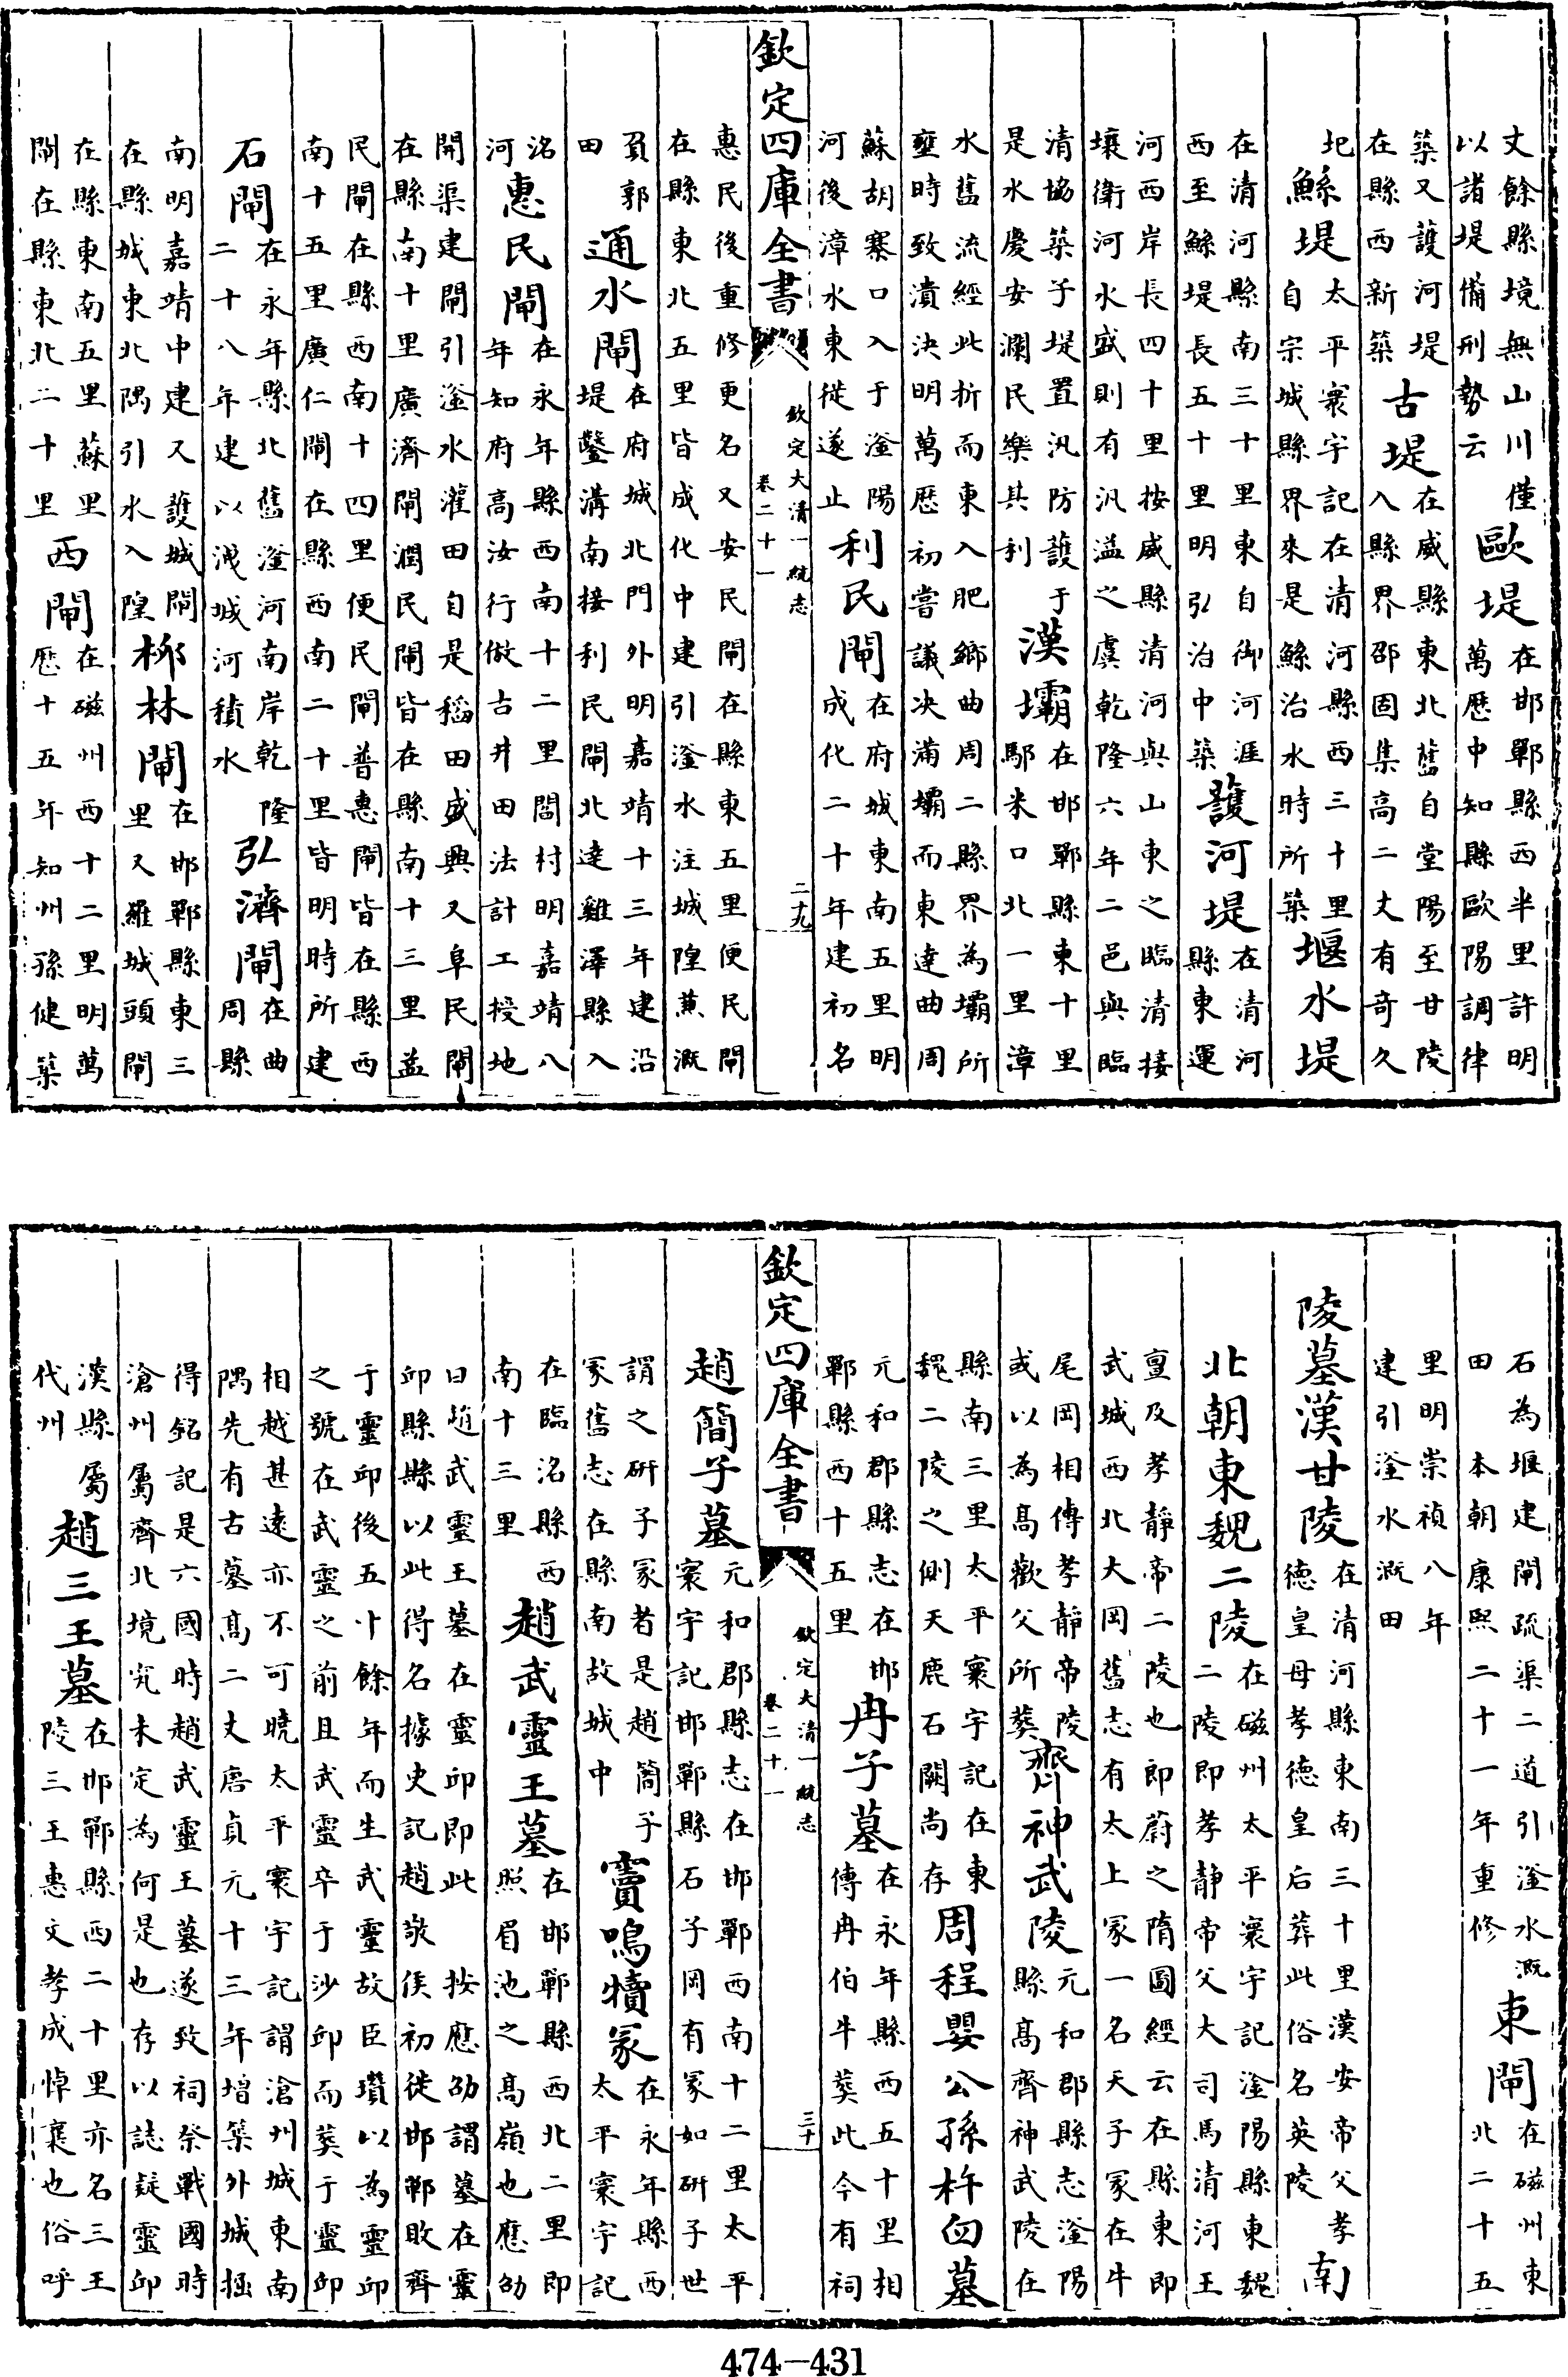 丈餘縣境無山川僅
以諸堤備刑勢云
歐堤
在邯鄲縣西半里許明
萬歷中知縣歐陽調律
築又護河堤
在縣西新築
古堤
在威縣東北舊自堂陽至甘陵
入縣界邵固集高二丈有奇久
圯
鯀堤
太平寰宇記在清河縣西三十里
自宗城縣界來是鯀治水時所築
堰水堤
在清河縣南三十里東自御河涯
西至鯀堤長五十里明弘治中築
護河堤
在清河
縣東運
河西岸長四十里按威縣清河與山東之臨清接
壤衛河水盛則有汎溢之虞乾隆六年二邑與臨
清協築子堤置汎防護于
是水慶安瀾民樂其利
漢壩
在邯鄲縣東十里
鄔米口北一里漳
水舊流經此折而東入肥鄉曲周二縣界為壩所
壅時致潰決明萬歷初嘗議决滿壩而東達曲周
蘇胡寨口入于滏陽
河後漳水東從遂止
利民閘
在府城東南五里明
成化二十年建初名
欽定四庫全書
欽定大清一統志
卷二十一
二十九
惠民後重修更名又安民閘在縣東五里便民閘
在縣東北五里皆成化中建引滏水注城隍蕪溉
負郭
田
通水閘
在府城北門外明嘉靖十三年建沿
堤鑿溝南接利民閘北達雞澤縣入
洺
河
惠民閘
在永年縣西南十二里閻村明嘉靖八
年知府高汝行倣古井田法計工授地
開渠建閘引滏水灌田自是稻田盛興又阜民閘
在縣南十里廣濟閘潤民閘皆在縣南十三里益
民閘在縣西南十四里便民閘普惠閘皆在縣西
南十五里廣仁閘在縣西南二十里皆明時所建
石閘
在永年縣北舊滏河南岸乾隆
二十八年建以洩城河積水
弘濟閘
在曲
周縣
南明嘉靖中建又護城閘
在縣城東北隅引水入隍
柳林閘
在邯鄲縣東三
里又羅城頭閘
在縣東南五里蘇里
閘在縣東北二十里
西閘
在磁州西十二里明萬
歷十五年知州孫健築
石為堰建閘疏渠二道引滏水溉
田 本朝康熙二十一年重修
東閘
在磁州東
北二十五
里明崇禎八年
建引滏水溉田
陵墓漢甘陵
在清河縣東南三十里漢安帝父孝
德皇母孝德皇后葬此俗名英陵
南
北朝東魏二陵
在磁州太平寰宇記滏陽縣東魏
二陵即孝靜帝父大司馬清河王
亶及孝靜帝二陵也即蔚之隋圖經云在縣東即
武城西北大岡舊志有太上冢一名天子冢在牛
尾岡相傳孝靜帝陵
或以為高歡父所葬
齊神武陵
元和郡縣志滏陽
縣高齊神武陵在
縣南三里太平寰宇記在東
魏二陵之側天鹿石闕尚存
周程嬰公孫杵臼墓
元和郡縣志在邯
鄲縣西十五里
冉子墓
在永年縣西五十里相
傳冉伯牛葬此今有祠
欽定四庫全書
欽定大清一統志
卷二十一
三十
趙簡子墓
元和郡縣志在邯鄲西南十二里太平
寰宇記邯鄲縣石子岡有冢如硏子世
謂之硏子冢者是趙簡子
冢舊志在縣南故城中
竇鳴犢冢
在永年縣西
太平寰宇記
在臨洺縣西
南十三里
趙武靈王墓
在邯鄲縣西北二里即
照眉池之高嶺也應劭
曰趙武靈王墓在靈邱即此 按應劭謂墓在靈
邱縣縣以此得名據史記趙敬侯初徙邯鄲敗齊
于靈邱後五十餘年而生武靈故臣瓚以為靈邱
之號在武靈之前且武靈卒于沙邱而葬于靈邱
相越甚遠亦不可曉太平寰宇記謂滄州城東南
隅先有古墓高二丈唐貞元十三年增築外城掘
得銘記是六國時趙武靈王墓遂致祠祭戰國時
滄州屬齊北境究未定為何是也存以誌疑靈邱
漢縣屬
代州
趙三王墓
在邯鄲縣西二十里亦名三王
陵三王惠文孝成悼襄也俗呼
474—431